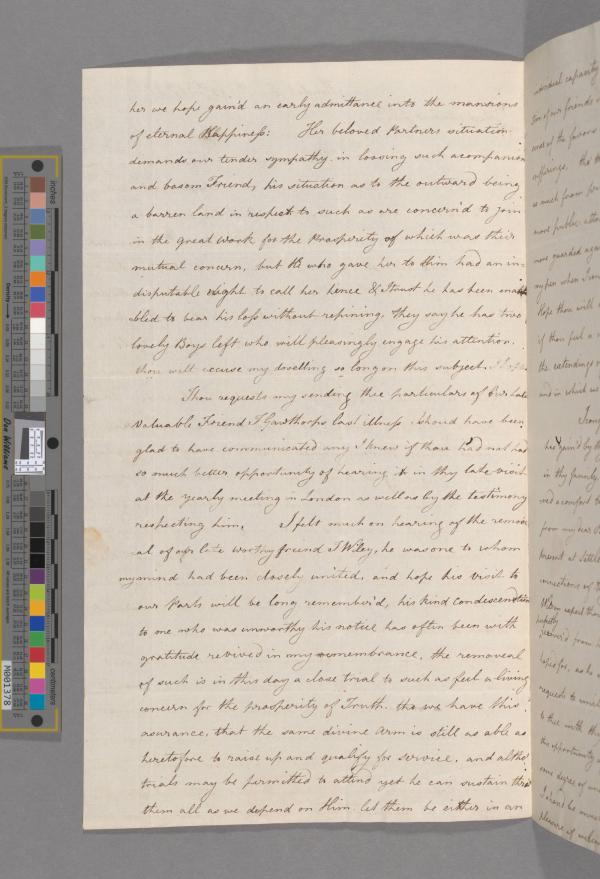 her we hope gain'd an early admittance into the mansions
of eternal Happiness: Her beloved Partners situation
demands our tender sympathy in loosing such acompanion
and bosom Friend, his situation as to the outward being
a barren land in respect to such as are concern'd to join
in the great work for the Prosperity of which was their
mutual concern, but He who gave her to Him had an in-
disputable right to call her hence & I trust he has been ena
bled to bear his loss without repining, they say he has two
lovely Boys left who will pleasingly engage his attention.
thou wilt excuse my dwelling so long on this subject.
Thou requests my sending thee particulars of Our Late
Valuable Friend J Gawthorps last illness I should have been
glad to have communicated any I knew if thou had not had
so much better opportunity of hearing it in thy late visit
at the yearly meeting in London as well as by the testimony
respecting him, I felt much on hearing of the remov
al of our late worthy friend J Wiley, he was one to whom
my mind had been closely united, and hope his visit to
our Parts will be long remember'd, his kind Condescention
to one who was unworthy his notice has often been with
gratitude revived in my remembrance, the removeal
of such is in this day a close trial to such as feel a living
concern for the prosperity of Truth. tho we have this
asurance, that the same divine Arm is still as able as
heretofore to raise up and qualify for service, and altho'
trials may be permitted to attend yet he can sustain thro
them all as we depend on Him. let them be either in an
ion of our friends
offerings, the
as much from
more public
more guarded
my pen when I
Hope thou will
if thou feel a
the extendings
and in which we
in thy family,
from my dear
present at Settle
to thee with
the opportunity
some degree of
inches
centimeters
Density
Don Williams
M001378